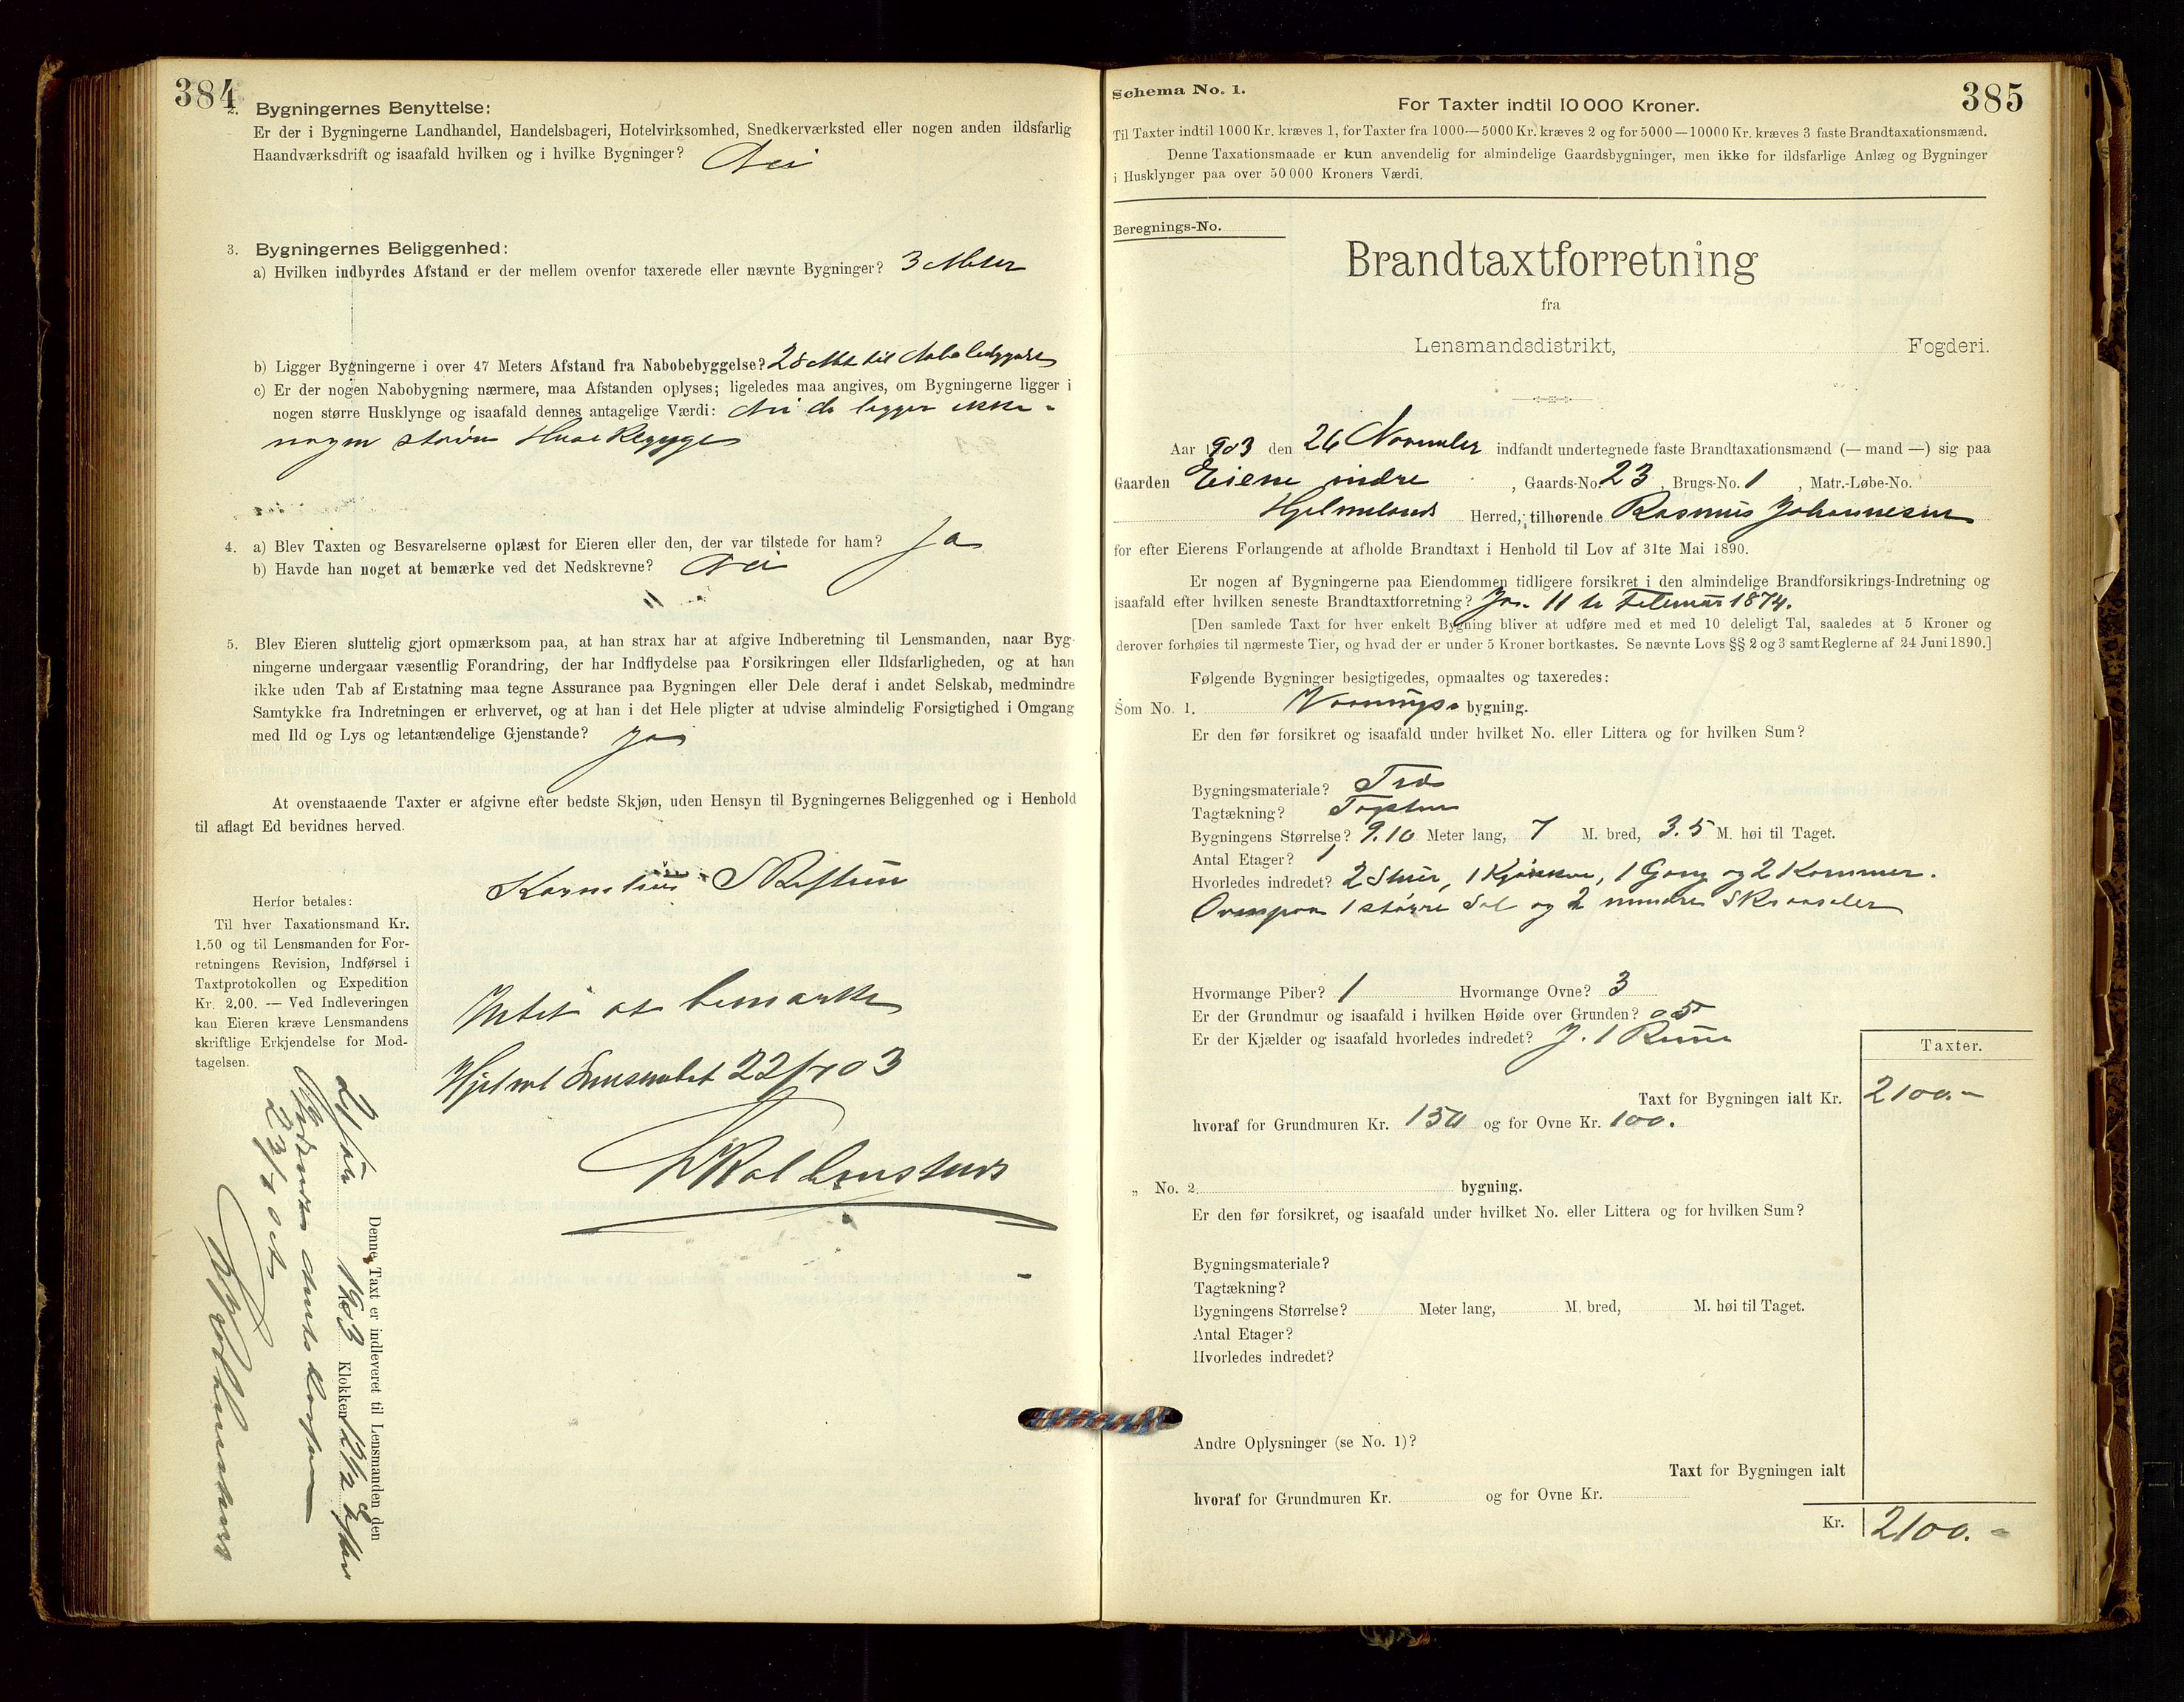 384
2. Bygningernes Benyttelse:
Er der i Bygningerne Landhandel, Handelsbageri, Hotelvirksomhed, Snedkerværksted eller nogen anden ildsfarlig
Haandværksdrift og isaafald hvilken og i hvilke Bygninger? Nei
3. Bygningernes Beliggenhed:
a) Hvilken indbyrdes Afstand er der mellem ovenfor taxerede eller nævnte Bygninger? 3 Meter
b) Ligger Bygningerne i over 47 Meters Afstand fra Nabobebyggelse? 28 Mtr til
c) Er der nogen Nabobygning nærmere, maa Afstanden oplyses; ligeledes maa angives, om Bygningerne ligger i
nogen større Husklynge og isaafald dennes antagelige Værdi: Nei de ligger ikke
nogen større
4. a) Blev Taxten og Besvarelserne oplæst for Eieren eller den, der var tilstede for ham? Ja
b) Havde han noget at bemærke ved det Nedskrevne? Nei
5. Blev Eieren sluttelig gjort opmærksom paa, at han strax har at afgive Indberetning til Lensmanden, naar Byg-
ningerne undergaar væsentlig Forandring, der har Indflydelse paa Forsikringen eller Ildsfarligheden, og at han
ikke uden Tab af Erstatning maa tegne Assurance paa Bygningen eller Dele deraf i andet Selskab, medmindre
Samtykke fra Indretningen er erhvervet, og at han i det Hele pligter at udvise almindelig Forsigtighed i Omgang
med Ild og Lys og letantændelige Gjenstande? Ja
At ovenstaaende Taxter er afgivne efter bedste Skjøn, uden Hensyn til Bygningernes Beliggenhed og i Henhold
til aflagt Ed bevidnes herved.
Herfor betales:
Til hver Taxationsmand Kr.
1.50 og til Lensmanden for For-
retningens Revision, Indførsel i
Taxtprotokollen og Expedition
Kr. 2.00. — Ved Indleveringen
kan Eieren kræve Lensmandens
skriftlige Erkjendelse for Mod-
tagelsen.
Intet at bemærke
Denne Taxt er indleveret til Lensmanden den
1903 Klokken 12 1/2
385
Schema No. 1.
For Taxter indtil 10 000 Kroner.
Til Taxter indtil 1000 Kr. kræves 1, for Taxter fra 1000—5000 Kr. kræves 2 og for 5000—10000 Kr. kræves 3 faste Brandtaxationsmænd.
Denne Taxationsmaade er kun anvendelig for almindelige Gaardsbygninger, men ikke for ildsfarlige Anlæg og Bygninger
i Husklynger paa over 50 000 Kroners Værdi.
Beregnings-No.
Brandtaxtforretning
fra
Lensmandsdistrikt, Fogderi.
Aar 1903 den 26 November indfandt undertegnede faste Brandtaxationsmænd (— mand —) sig paa
Gaarden Eiene indre, Gaards-No. 23, Brugs-No. 1, Matr.-Løbe-No.
Hjelmelands Herred, tilhørende Rasmus Johannesen
for efter Eierens Forlangende at afholde Brandtaxt i Henhold til Lov af 31te Mai 1890.
Er nogen af Bygningerne paa Eiendommen tidligere forsikret i den almindelige Brandforsikrings-Indretning og
isaafald efter hvilken seneste Brandtaxtforretning? Ja. 11 te Februar 1874.
[Den samlede Taxt for hver enkelt Bygning bliver at udføre med et med 10 deleligt Tal, saaledes at 5 Kroner og
derover forhøies til nærmeste Tier, og hvad der er under 5 Kroner bortkastes. Se nævnte Lovs §§ 2 og 3 samt Reglerne af 24 Juni 1890.]
Følgende Bygninger besigtigedes, opmaaltes og taxeredes:
Som No. 1. Vaanings bygning.
Er den før forsikret og isaafald under hvilket No. eller Littera og for hvilken Sum?
Bygningsmateriale? Træ
Tagtækning? Tagsten
Bygningens Størrelse? 9.10 Meter lang, 7 M. bred, 3.5 M. høi til Taget.
Antal Etager? 1
Hvorledes indredet? 2 Stuer, 1 Kjøkken, 1 Gang og 2 Kammer.
Ovenpaa 1 større Sal og 2 mindre Skraasaler
Hvormange Piber? 1 Hvormange Ovne? 3
Er der Grundmur og isaafald i hvilken Høide over Grunden? 0.5
Er der Kjælder og isaafald hvorledes indredet? J. 1 Rum
Taxter.
Taxt for Bygningen ialt Kr. 2100.-
hvoraf for Grundmuren Kr. 150 og for Ovne Kr. 100.
„ No. 2. bygning.
Er den før forsikret, og isaafald under hvilket No. eller Littera og for hvilken Sum?
Bygningsmateriale?
Tagtækning?
Bygningens Størrelse? Meter lang, M. bred, M. høi til Taget.
Antal Etager?
Hvorledes indredet?
Andre Oplysninger (se No. 1)?
Taxt for Bygningen ialt
hvoraf for Grundmuren Kr. og for Ovne Kr.
Kr. 2100.-